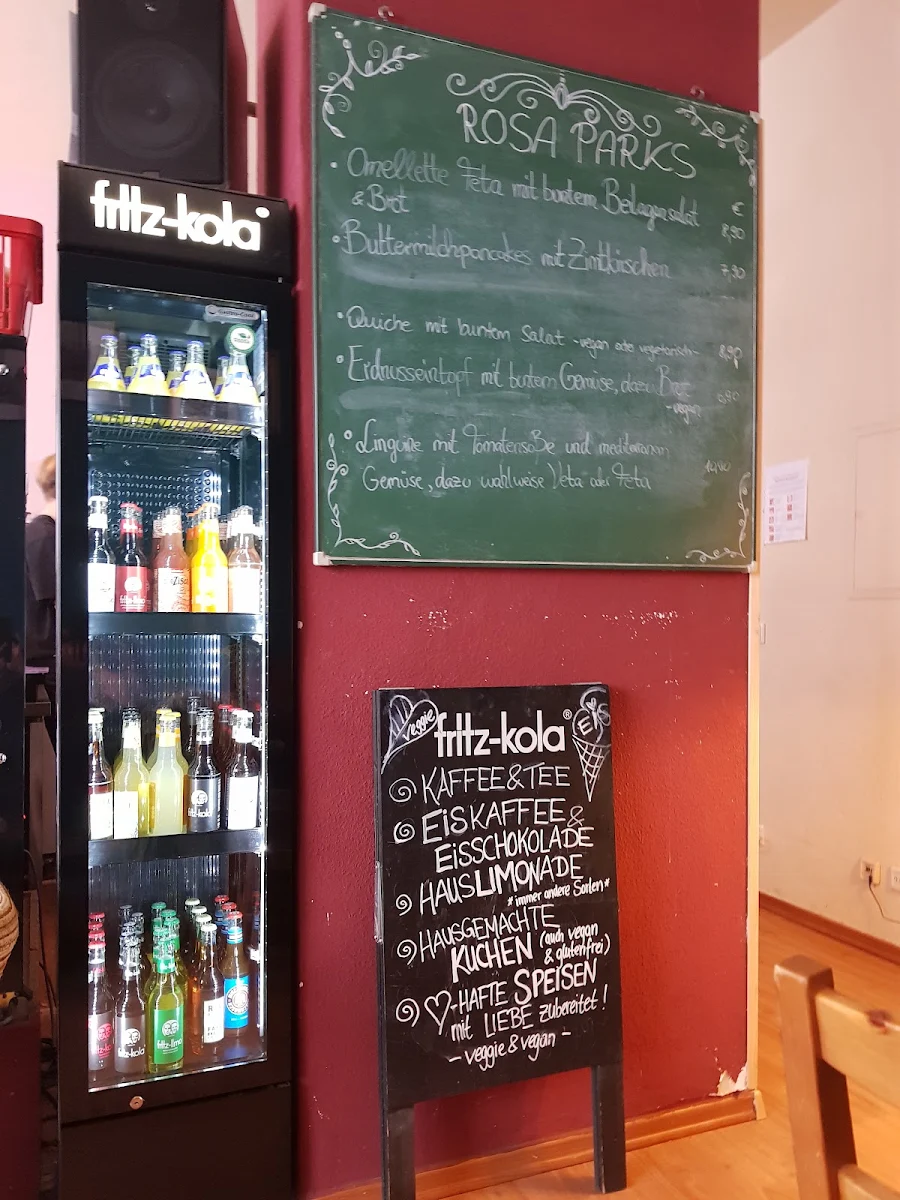 fritz-kola
ROSA PARKS
• Omellette Feta mit buntem Beilagensalat
& Brot
€
8,90
• Buttermilchpancakes mit Zimtkirschen
7,90
• Quiche mit buntem Salat -vegan oder vegetarisch-
8,90
• Erdnusseintopf mit buntem Gemüse, dazu Brot
-vegan
• Linguine mit Tomatensoße und mediterranem
Gemüse, dazu wahlweise Veta oder Feta
veggie
fritz-kola®
EIS
KAFFEE & TEE
EiSKAFFEE &
EiSSCHOKOLADE
HAUSLIMONADE
*immer andere Sorten*
HAUSGEMACHTE
KUCHEN (auch vegan
& glutenfrei)
♡-HAFTE SPEISEN
mit LIEBE zubereitet!
- veggie & vegan -
fritz-kola
fritz-kola
fritz-limo